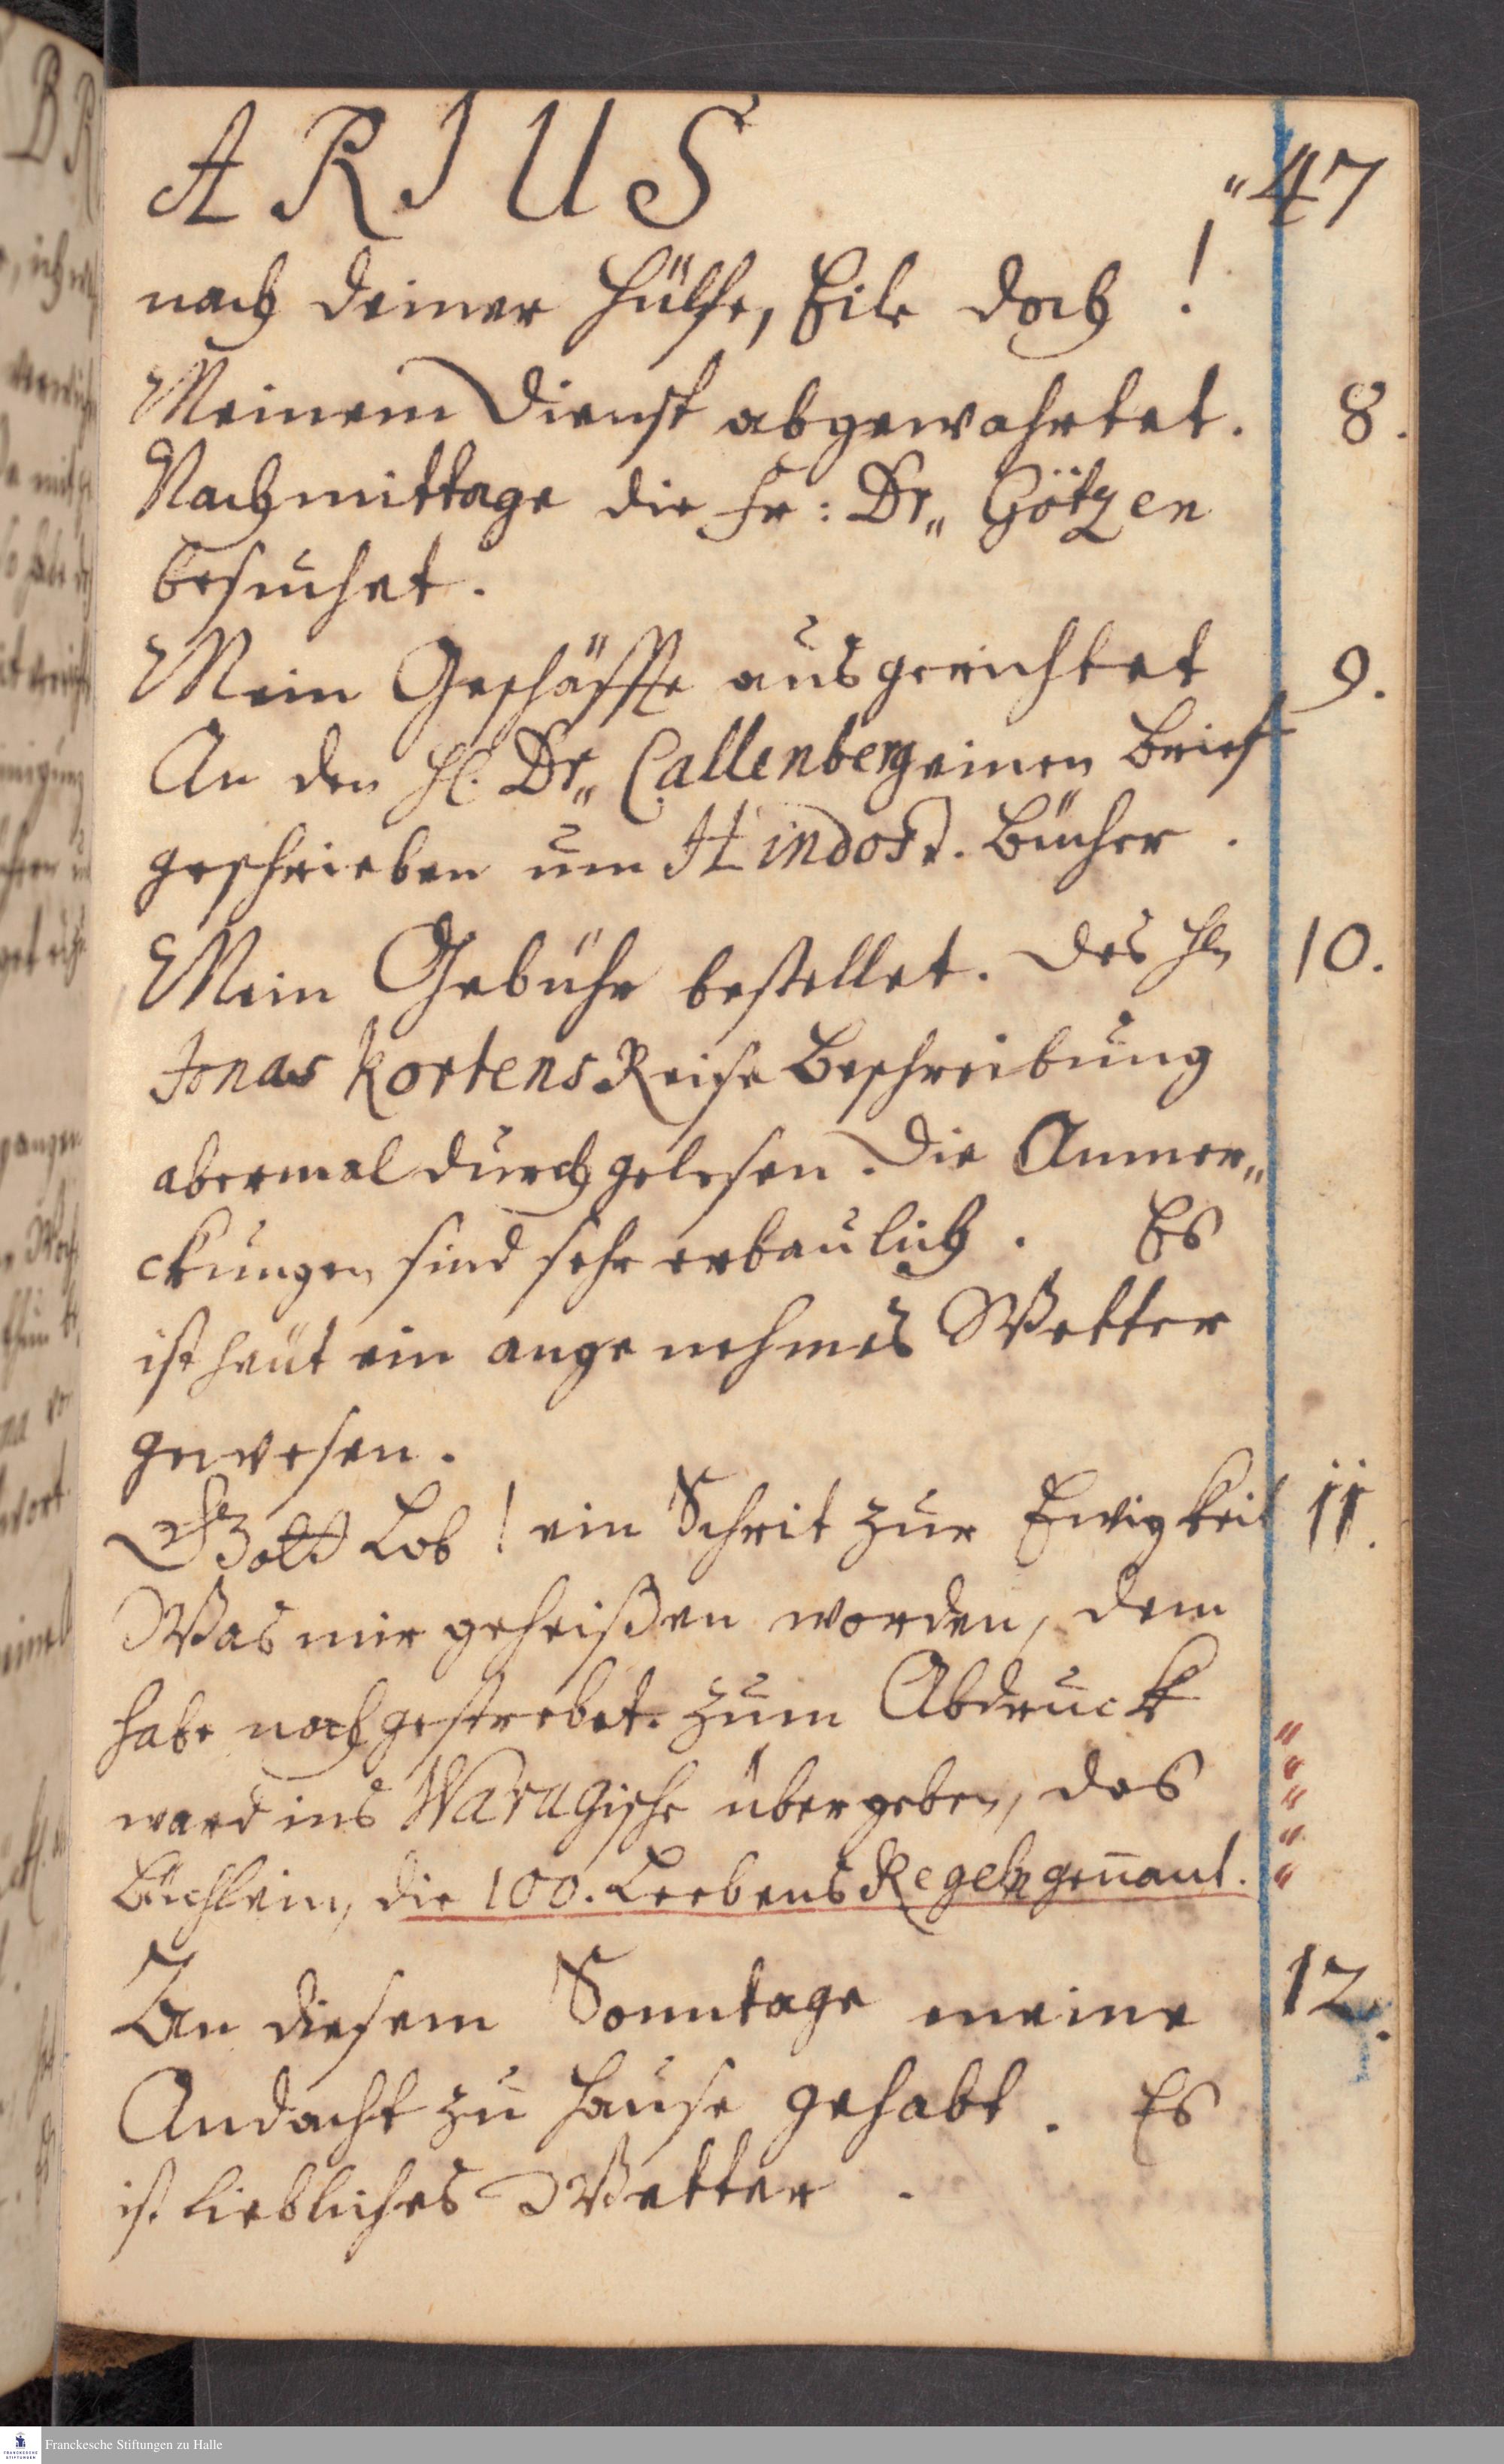 ARIUS
„47
nach deiner Hülffe, Eile doch!
Meinem Dienst abgewahrtet. 8.
Nachmittage die Fr: Dr„ Götzen
besuchet.
Mein Geschäffte ausgerichtet 9.
An den H. Dr„ Callenberg einen Brief
geschrieben um Hindost. Bücher.
Mein Gebühr bestellet. Des Hn 10.
Jonas Kortens Reise Beschreibung
abermal durchgelesen. Die Anmer„
ckungen sind sehr erbaulich. Es
ist heüt ein angenehmes Wetter
gewesen.
Gott Lob! ein Schrit zur Ewigkeit 11.
Was mir geheißen worden, dem
habe nachgestrebet. Zum Abdruck
ward ins Warugische übergeben, das
Büchlein, die 100. Leebens Regeln genant.
An diesem Sonntage meine 12.
Andacht zu Hause gehabt. Es
ist liebliches Wetter.
Franckesche Stiftungen zu Halle